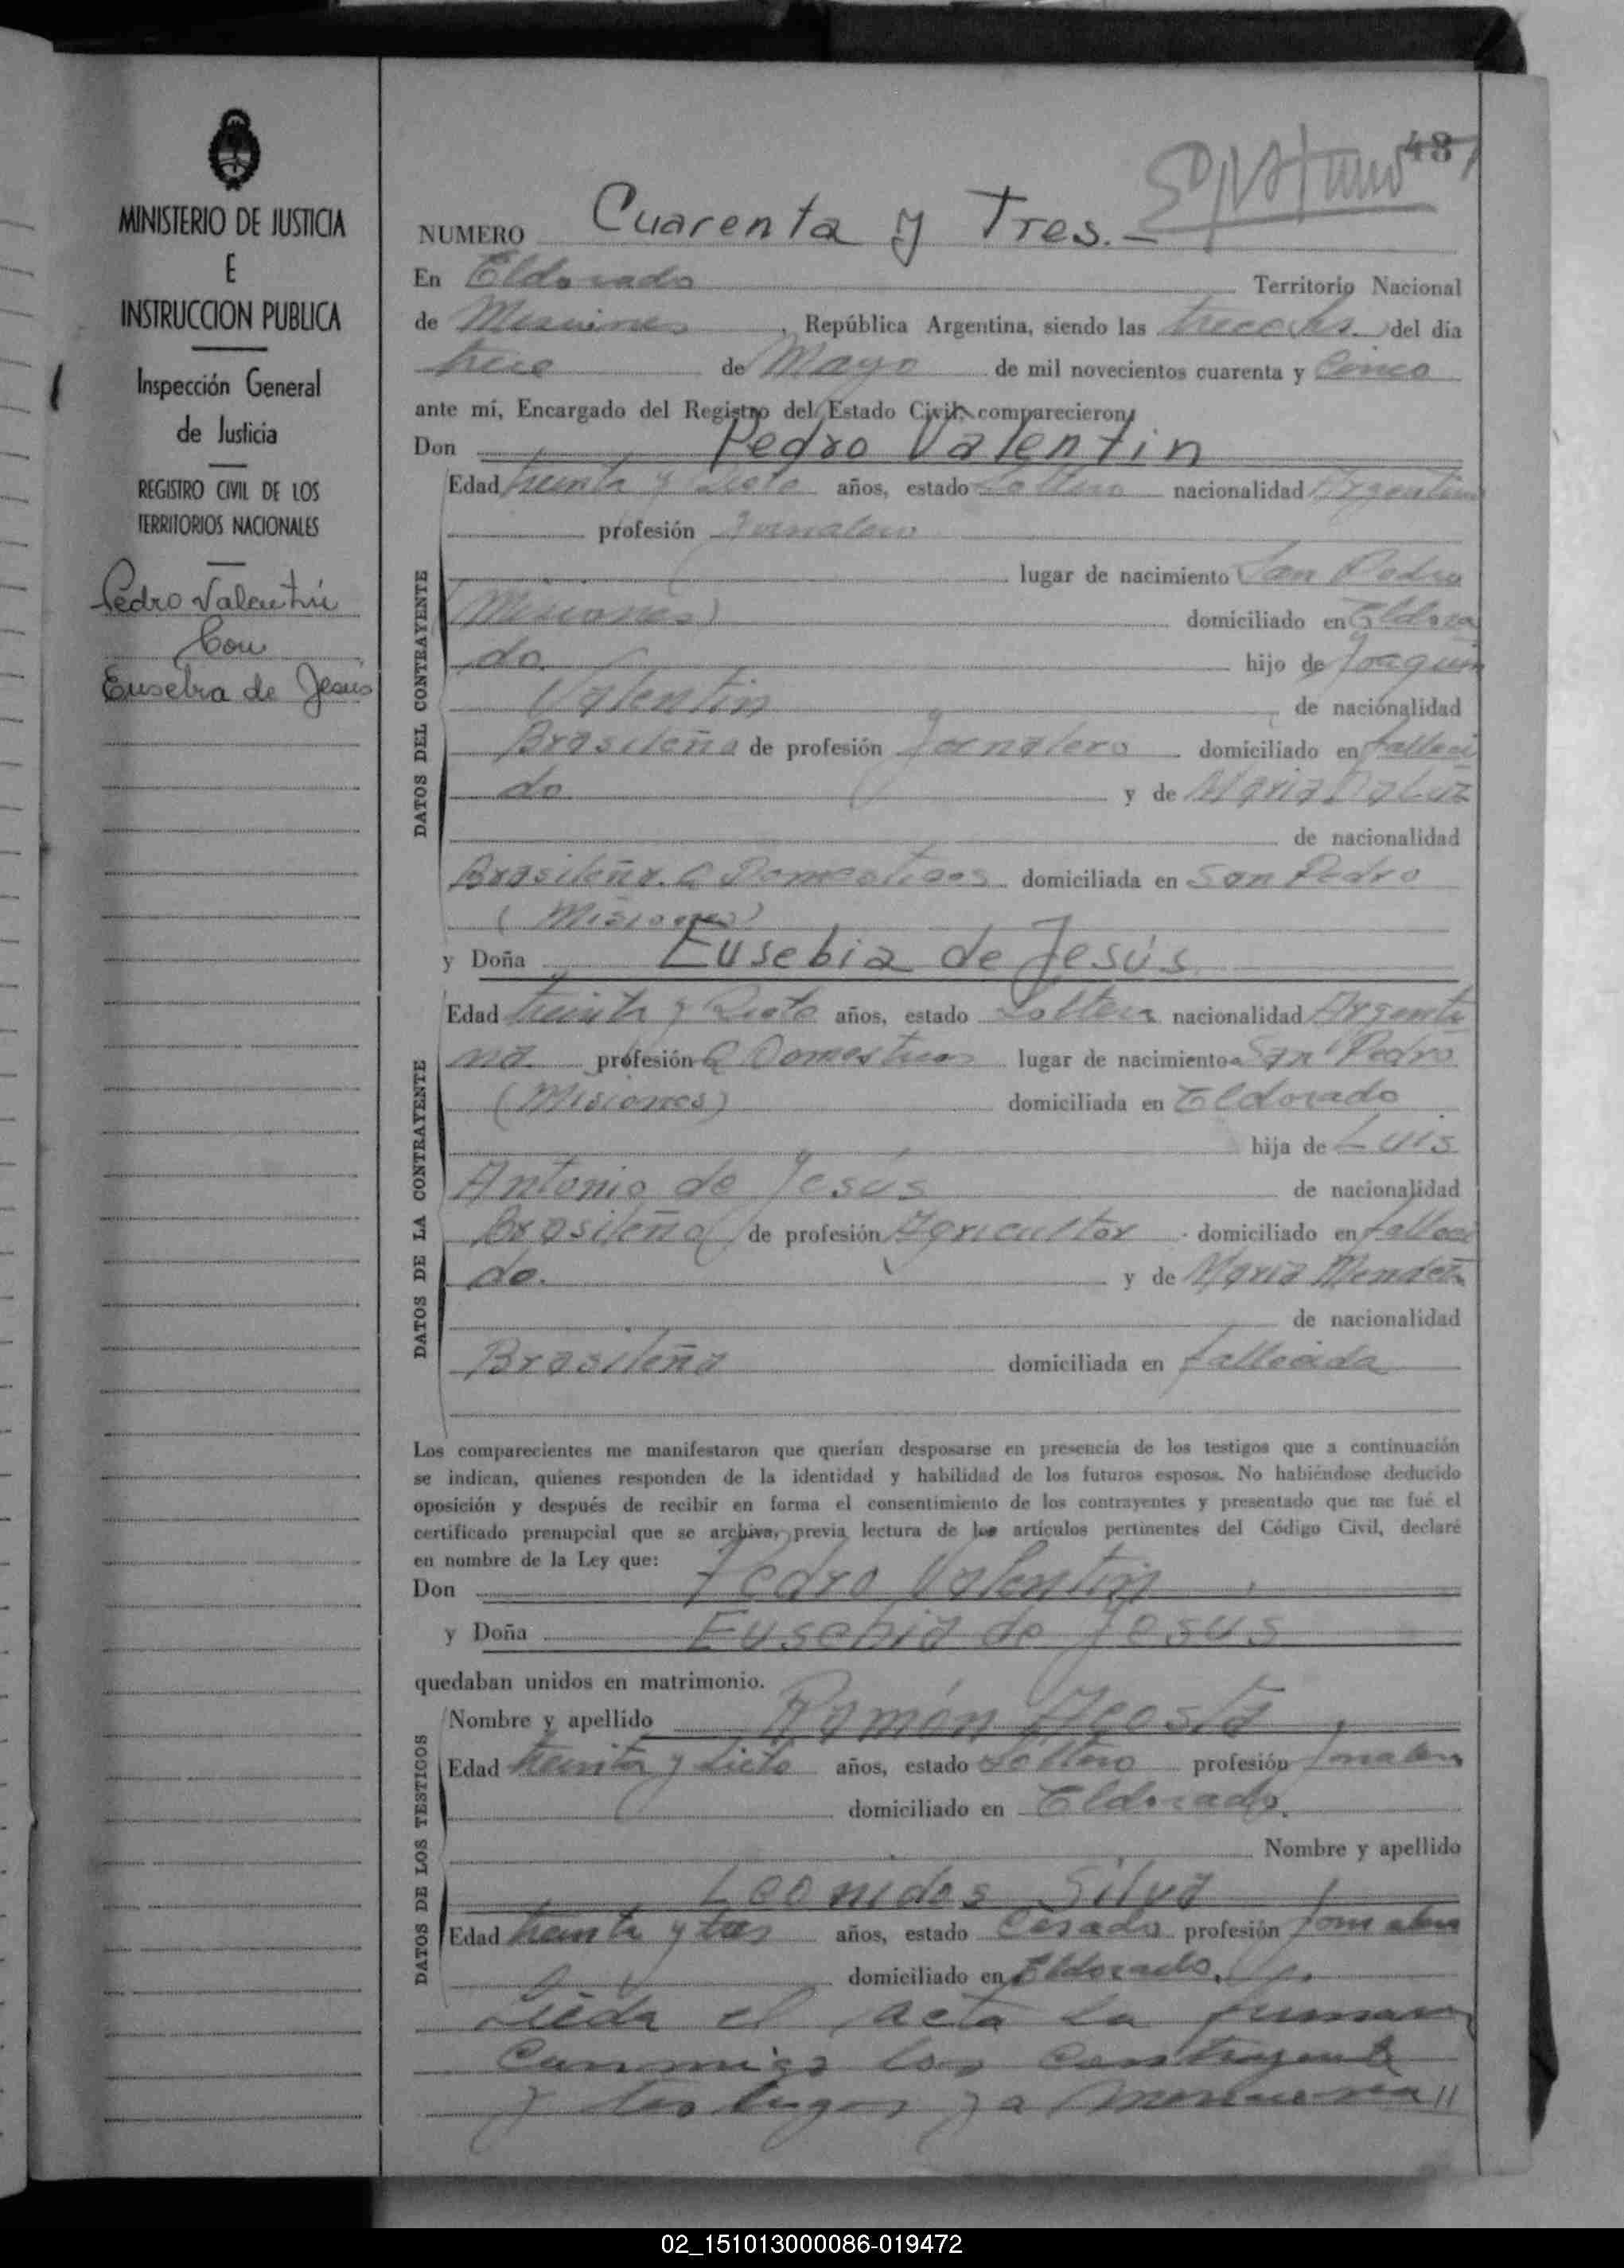 MINISTERIO DE JUSTICIA
E
INSTRUCCION PUBLICA
Inspección General
de Justicia
REGISTRO CIVIL DE LOS
TERRITORIOS NACIONALES
Pedro Valentin
Con
Eusebia de Jesús
48
NUMERO Cuarenta y Tres.-
En Eldorado Territorio Nacional
de Misiones, República Argentina, siendo las del día
trece de Mayo de mil novecientos cuarenta y Cinco
ante mí, Encargado del Registro del Estado Civil, comparecieron
Don Pedro Valentin
DATOS DEL CONTRAYENTE
Edad treinta y Siete años, estado Soltero nacionalidad Argentina
profesión Jornalero
lugar de nacimiento San Pedro
(Misiones) domiciliado en Eldora
do. hijo de Joaquin
Valentin de nacionalidad
Brasileña de profesión Jornalero domiciliado en falleci
do y de Maria
de nacionalidad
Brasileña. Q Domesticos domiciliada en San Pedro
(Misiones)
y Doña Eusebia de Jesús
DATOS DE LA CONTRAYENTE
Edad treinta y Siete años, estado Soltera nacionalidad Argenti
na profesión Q Domesticos lugar de nacimiento San Pedro
(Misiones) domiciliada en Eldorado
hija de Luis
Antonio de Jesús de nacionalidad
Brasileña de profesión Agricultor domiciliado en falleci
do. y de Maria
de nacionalidad
Brasileña domiciliada en fallecida
Los comparecientes me manifestaron que querían desposarse en presencia de los testigos que a continuación
se indican, quienes responden de la identidad y habilidad de los futuros esposos. No habiéndose deducido
oposición y después de recibir en forma el consentimiento de los contrayentes y presentado que me fué el
certificado prenupcial que se archiva, previa lectura de los artículos pertinentes del Código Civil, declaré
en nombre de la Ley que:
Don Pedro Valentin
y Doña Eusebia de Jesus
quedaban unidos en matrimonio.
DATOS DE LOS TESTIGOS
Nombre y apellido Ramón Acosta
Edad treinta y siete años, estado Soltero profesión Jornalero
domiciliado en Eldorado.
Nombre y apellido
Leonidas Silva
Edad treinta y tres años, estado Casado profesión Jornalero
domiciliado en Eldorado.
Leida el acta la firman
conmigo los contrayentes
y testigos y a
02_151013000086-019472